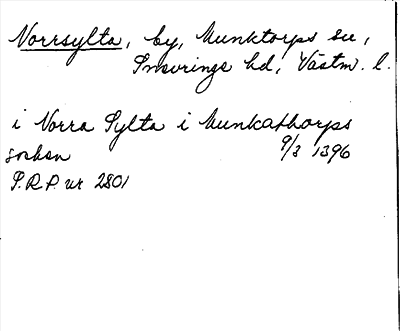 Norrsylta, by, Munktorps sn,
Snevringe hd, Västm. l.
i Norra Sylta i Munkathorps
sochen 9/3 1396
S.R.P. nr 2801